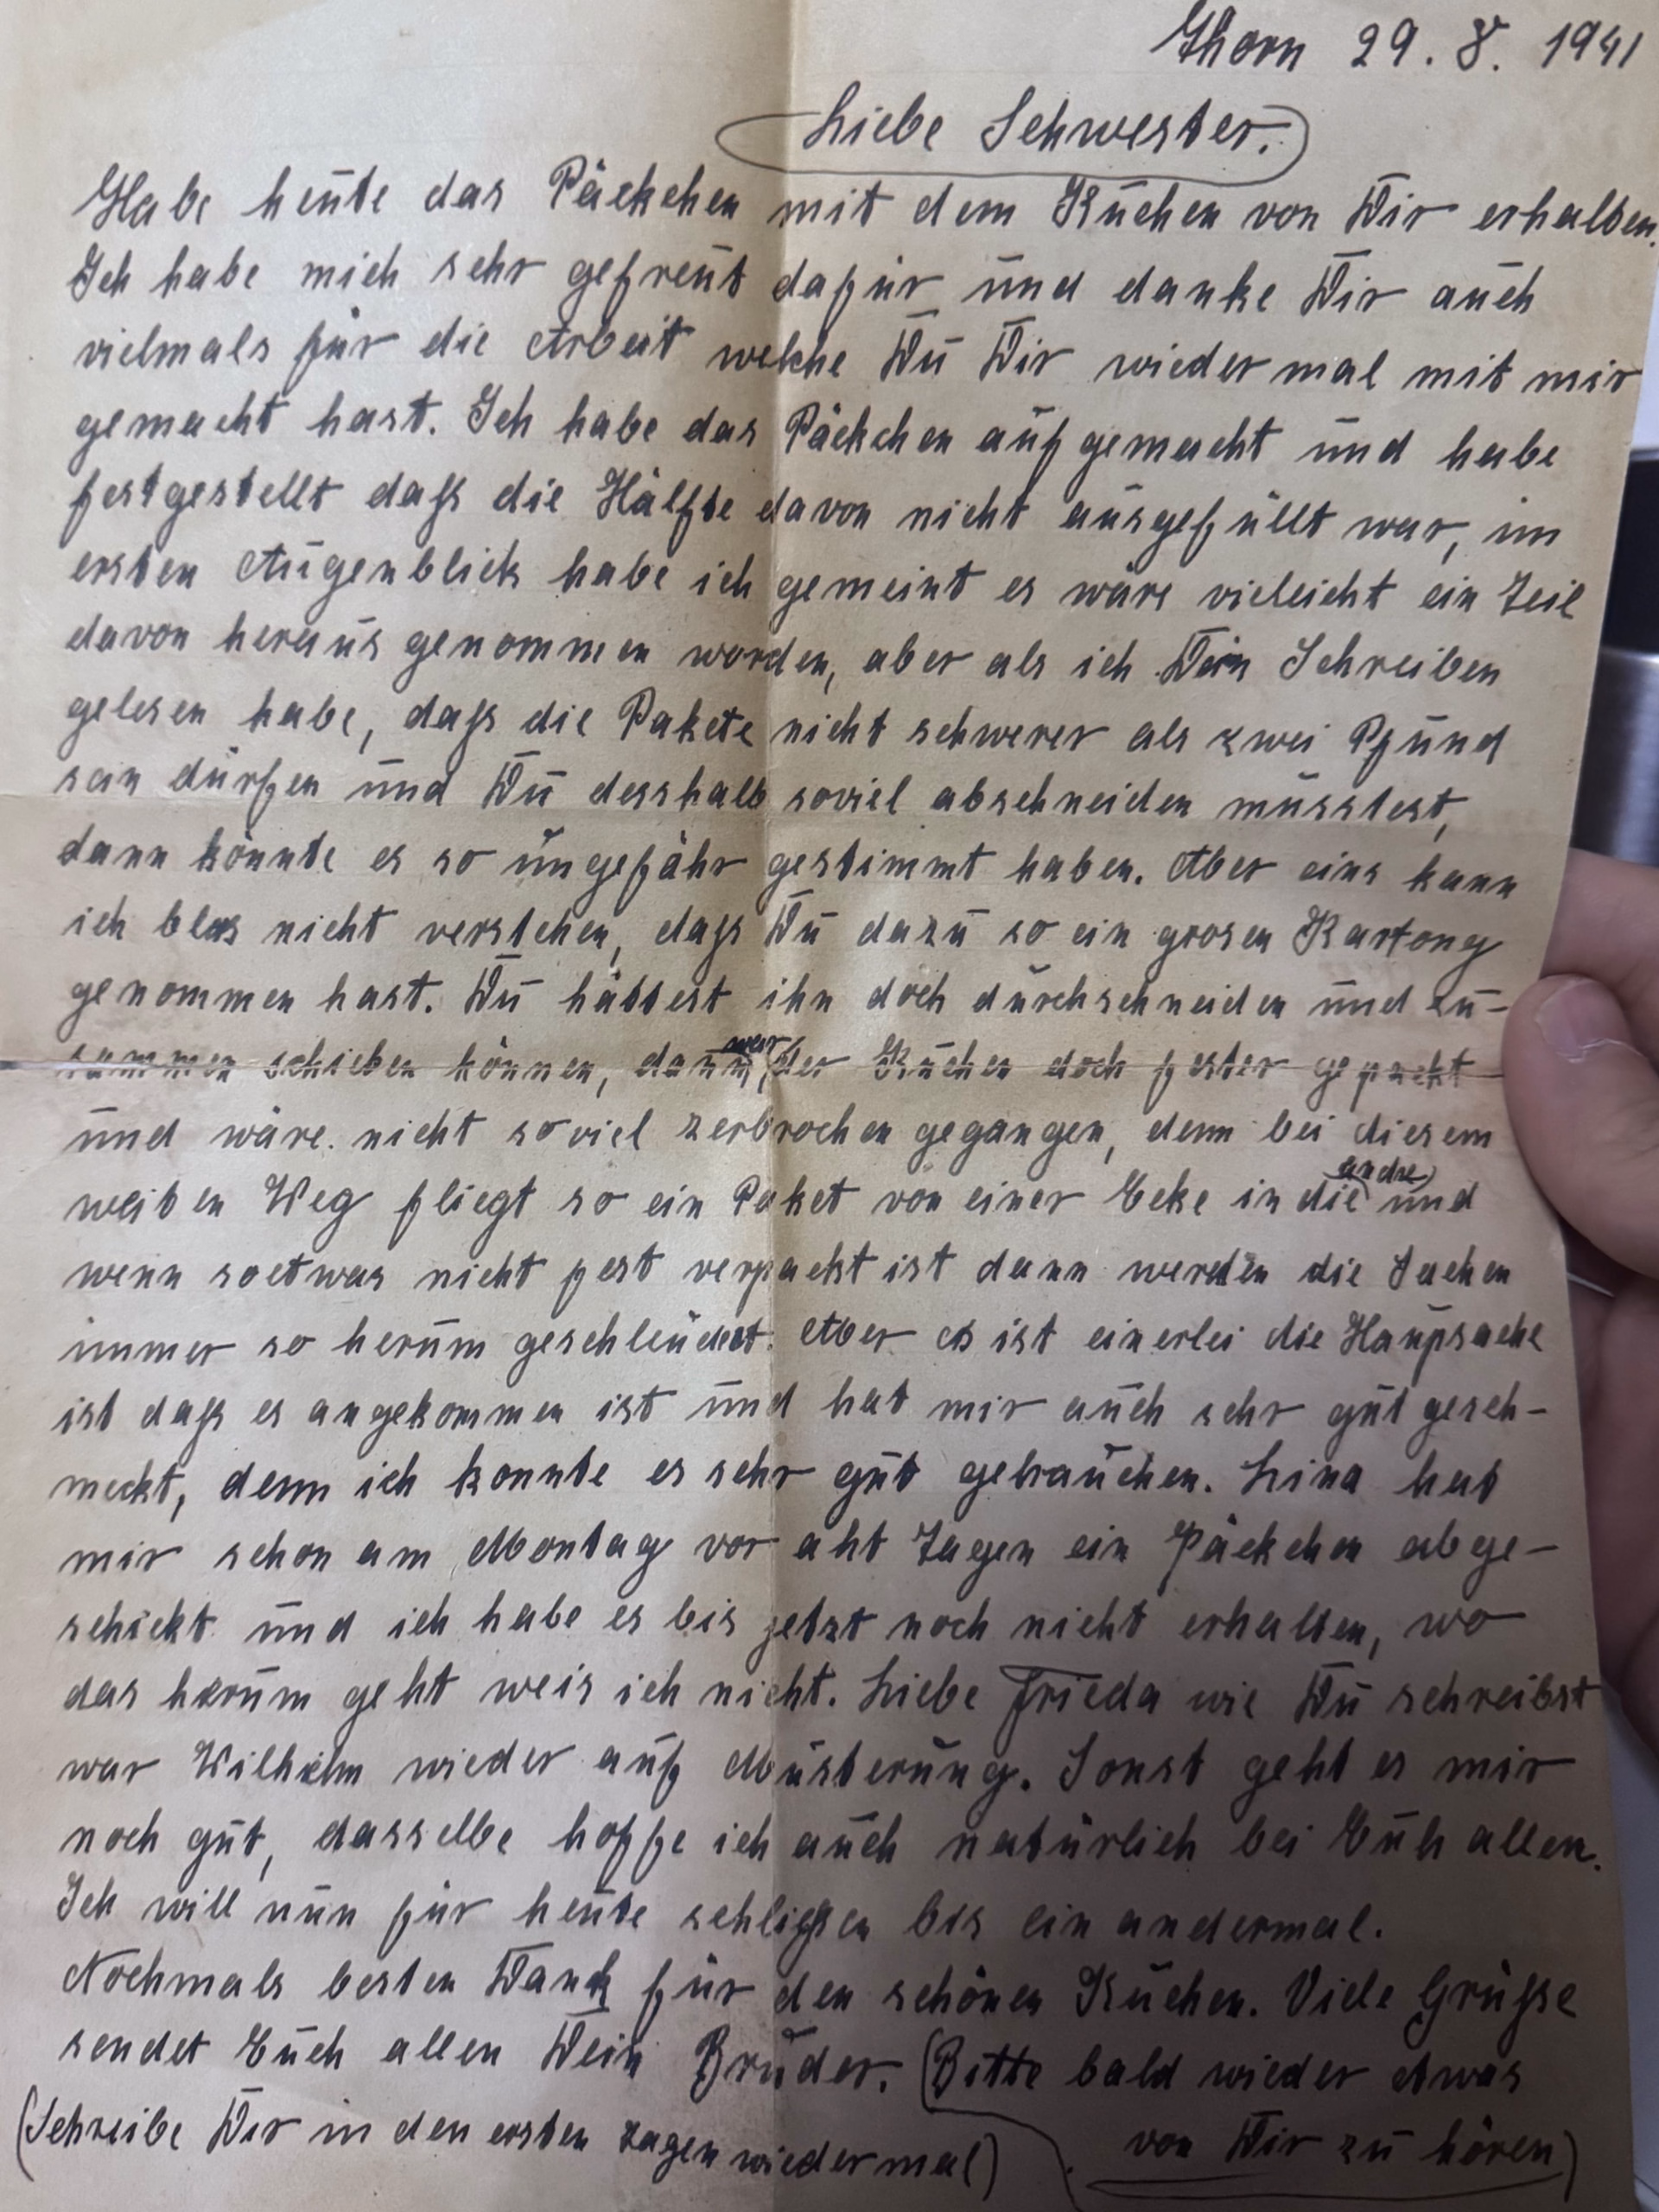 Thorn 29. 8. 1941
Liebe Schwester.
Habe heute das Päckchen mit dem Kuchen von Dir erhalten.
Ich habe mich sehr gefreut dafür und danke Dir auch
vielmals für die Arbeit welche Du Dir wieder mal mit mir
gemacht hast. Ich habe das Päckchen aufgemacht und habe
festgestellt daß die Hälfte davon nicht ausgefüllt war, im
ersten Augenblick habe ich gemeint es wäre vieleicht ein Teil
davon heraus genommen worden, aber als ich Dein Schreiben
gelesen habe, daß die Pakete nicht schwerer als zwei Pfund
sein dürfen und Du desshalb soviel abschneiden musstest,
dann könnte es so ungefähr gestimmt haben. Aber eins kann
ich blos nicht verstehen, daß Du dazu so ein grosen Kartong
genommen hast. Du hättest ihn doch durchschneiden und zu-
sammen schieben können, dann wär der Kuchen doch fester gepackt
und wäre nicht soviel zerbrochen gegangen, denn bei diesem
weiten Weg fliegt so ein Paket von einer Ecke in die andre und
wenn soetwas nicht fest verpackt ist dann werden die Sachen
immer so herum geschleudert. Aber es ist einerlei die Haupsache
ist daß es angekommen ist und hat mir auch sehr gut gesch-
meckt, denn ich konnte es sehr gut gebrauchen. Lina hat
mir schon am Montag vor aht Tagen ein Päckchen abge-
schickt und ich habe es bis jetzt noch nicht erhalten, wo
das herum geht weis ich nicht. Liebe Frieda wie Du schreibst
war Wilhelm wieder auf Musterung. Sonst geht es mir
noch gut, dasselbe hoffe ich auch natürlich bei Euh allen.
Ich will nun für heute schließen bis ein andermal.
Nochmals besten Dank für den schönen Kuchen. Viele Grüße
sendet Euch allen Dein Bruder. (Bitte bald wieder etwas
von Dir zu hören)
(Schreibe Dir in den ersten Tagen wiedermal)